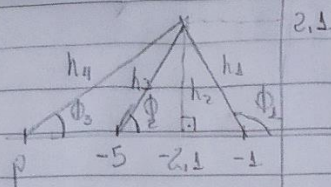 2,1
h4 h3 h2 h1
ϕ3 ϕ2 ϕ1
P -5 -2,1 -1